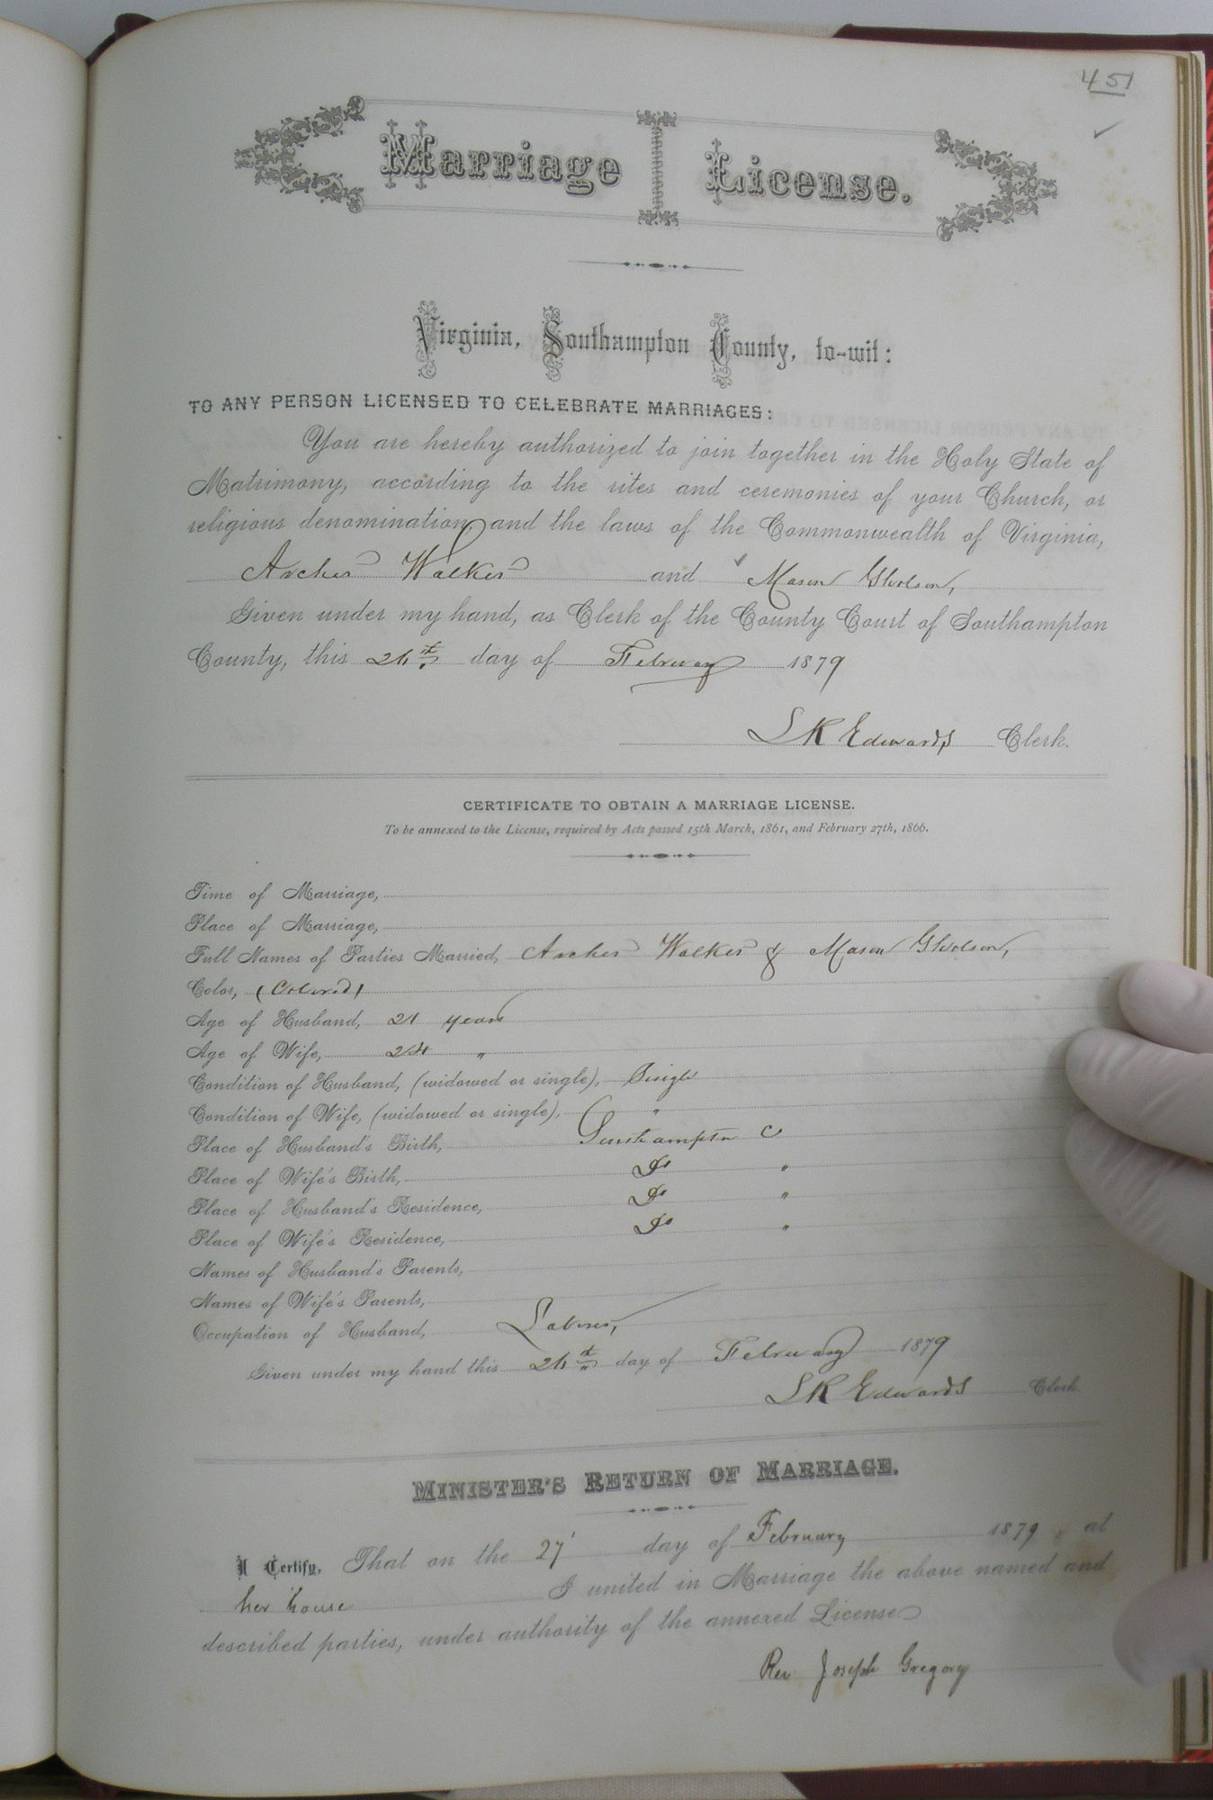 451
Marriage License.
Virginia, Southampton County, to-wit:
TO ANY PERSON LICENSED TO CELEBRATE MARRIAGES:
You are hereby authorized to join together in the Holy State of
Matrimony, according to the rites and ceremonies of your Church, or
religious denomination, and the laws of the Commonwealth of Virginia,
Archer Walker and Mason Gholson,
Given under my hand, as Clerk of the County Court of Southampton
County, this day of February 1879
S K Edwards Clerk.
CERTIFICATE TO OBTAIN A MARRIAGE LICENSE.
To be annexed to the License, required by Acts passed 15th March, 1861, and February 27th, 1866.
Time of Marriage,
Place of Marriage,
Full Names of Parties Married, Archer Walker & Mason Gholson,
Color, (Colored)
Age of Husband, 21 years
Age of Wife, 24 "
Condition of Husband, (widowed or single), Single
Condition of Wife, (widowed or single), "
Place of Husband's Birth, Southampton Co
Place of Wife's Birth, Do "
Place of Husband's Residence, Do "
Place of Wife's Residence, Do "
Names of Husband's Parents,
Names of Wife's Parents,
Occupation of Husband, Laborer,
Given under my hand this day of February 1879
S K Edwards Clerk
MINISTER'S RETURN OF MARRIAGE.
I Certify, That on the 27 day of February 1879, at
her house I united in Marriage the above named and
described parties, under authority of the annexed License
Rev Joseph Gregory